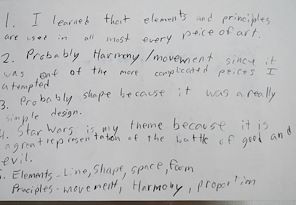 1. I learned that elements and principles
are used in all most every peice of art.
2. Probably Harmony/movement since it
was one of the more complicated peices I
attempted
3. Probably shape because it was a really
simple design.
4. Star Wars is my theme because it is
a great representation of the battle of good and
evil.
5. Elements-Line, Shape, space, form
Principles-movement, Harmony, proportion